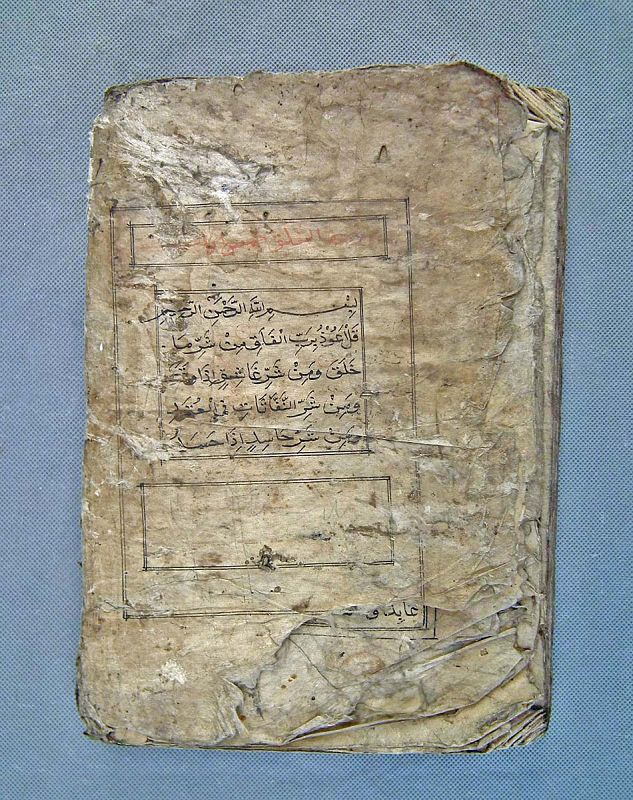 الفلق
بِسْمِ اللهِ الرَّحْمٰنِ الرَّحِيمِ
قُلْ عُوْذُ بِرَبِّ الْفَلَقِ مِنْ شَرِّ مَا
خَلَقَ وَمِنْ شَرِّ غَاسِقٍ اِذَا وَقَبَ
وَمِنْ شَرِّ النَّفَّاثَاتِ فِي الْعُقَدِ
وَمِنْ شَرِّ حَاسِدٍ اِذَا حَسَدَ